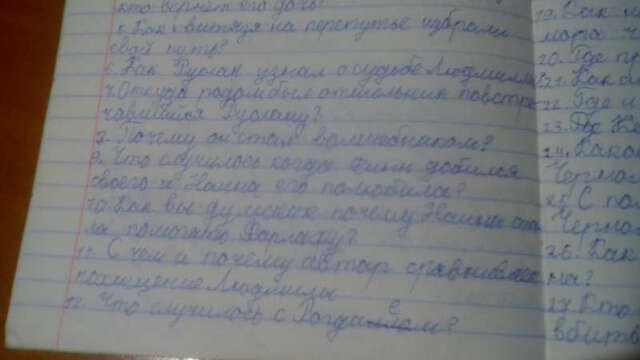 кто вернёт его дочь?
5. Как витязя на перепутье избрали
свой путь?
6. Как Руслан узнал о судьбе Людмилы?
7. Откуда родом был отшельник повстре-
чавшийся Руслану?
8. Почему он стал волшебником?
9. Что случилось когда Финн добился
своего и Наина его полюбила?
10. Как вы думаете почему Наина ста
ла помогать Фарлафу?
11. С чем и почему автор сравнивает
похищение Людмилы
12. Что случилось с Рогдаем?
19. Как
мора ч
20. Где пр
21. Как
22. Где
23. Где
24. Како
Черном
25. С по
Черно
26. Как
на?
27. Кто
в битв